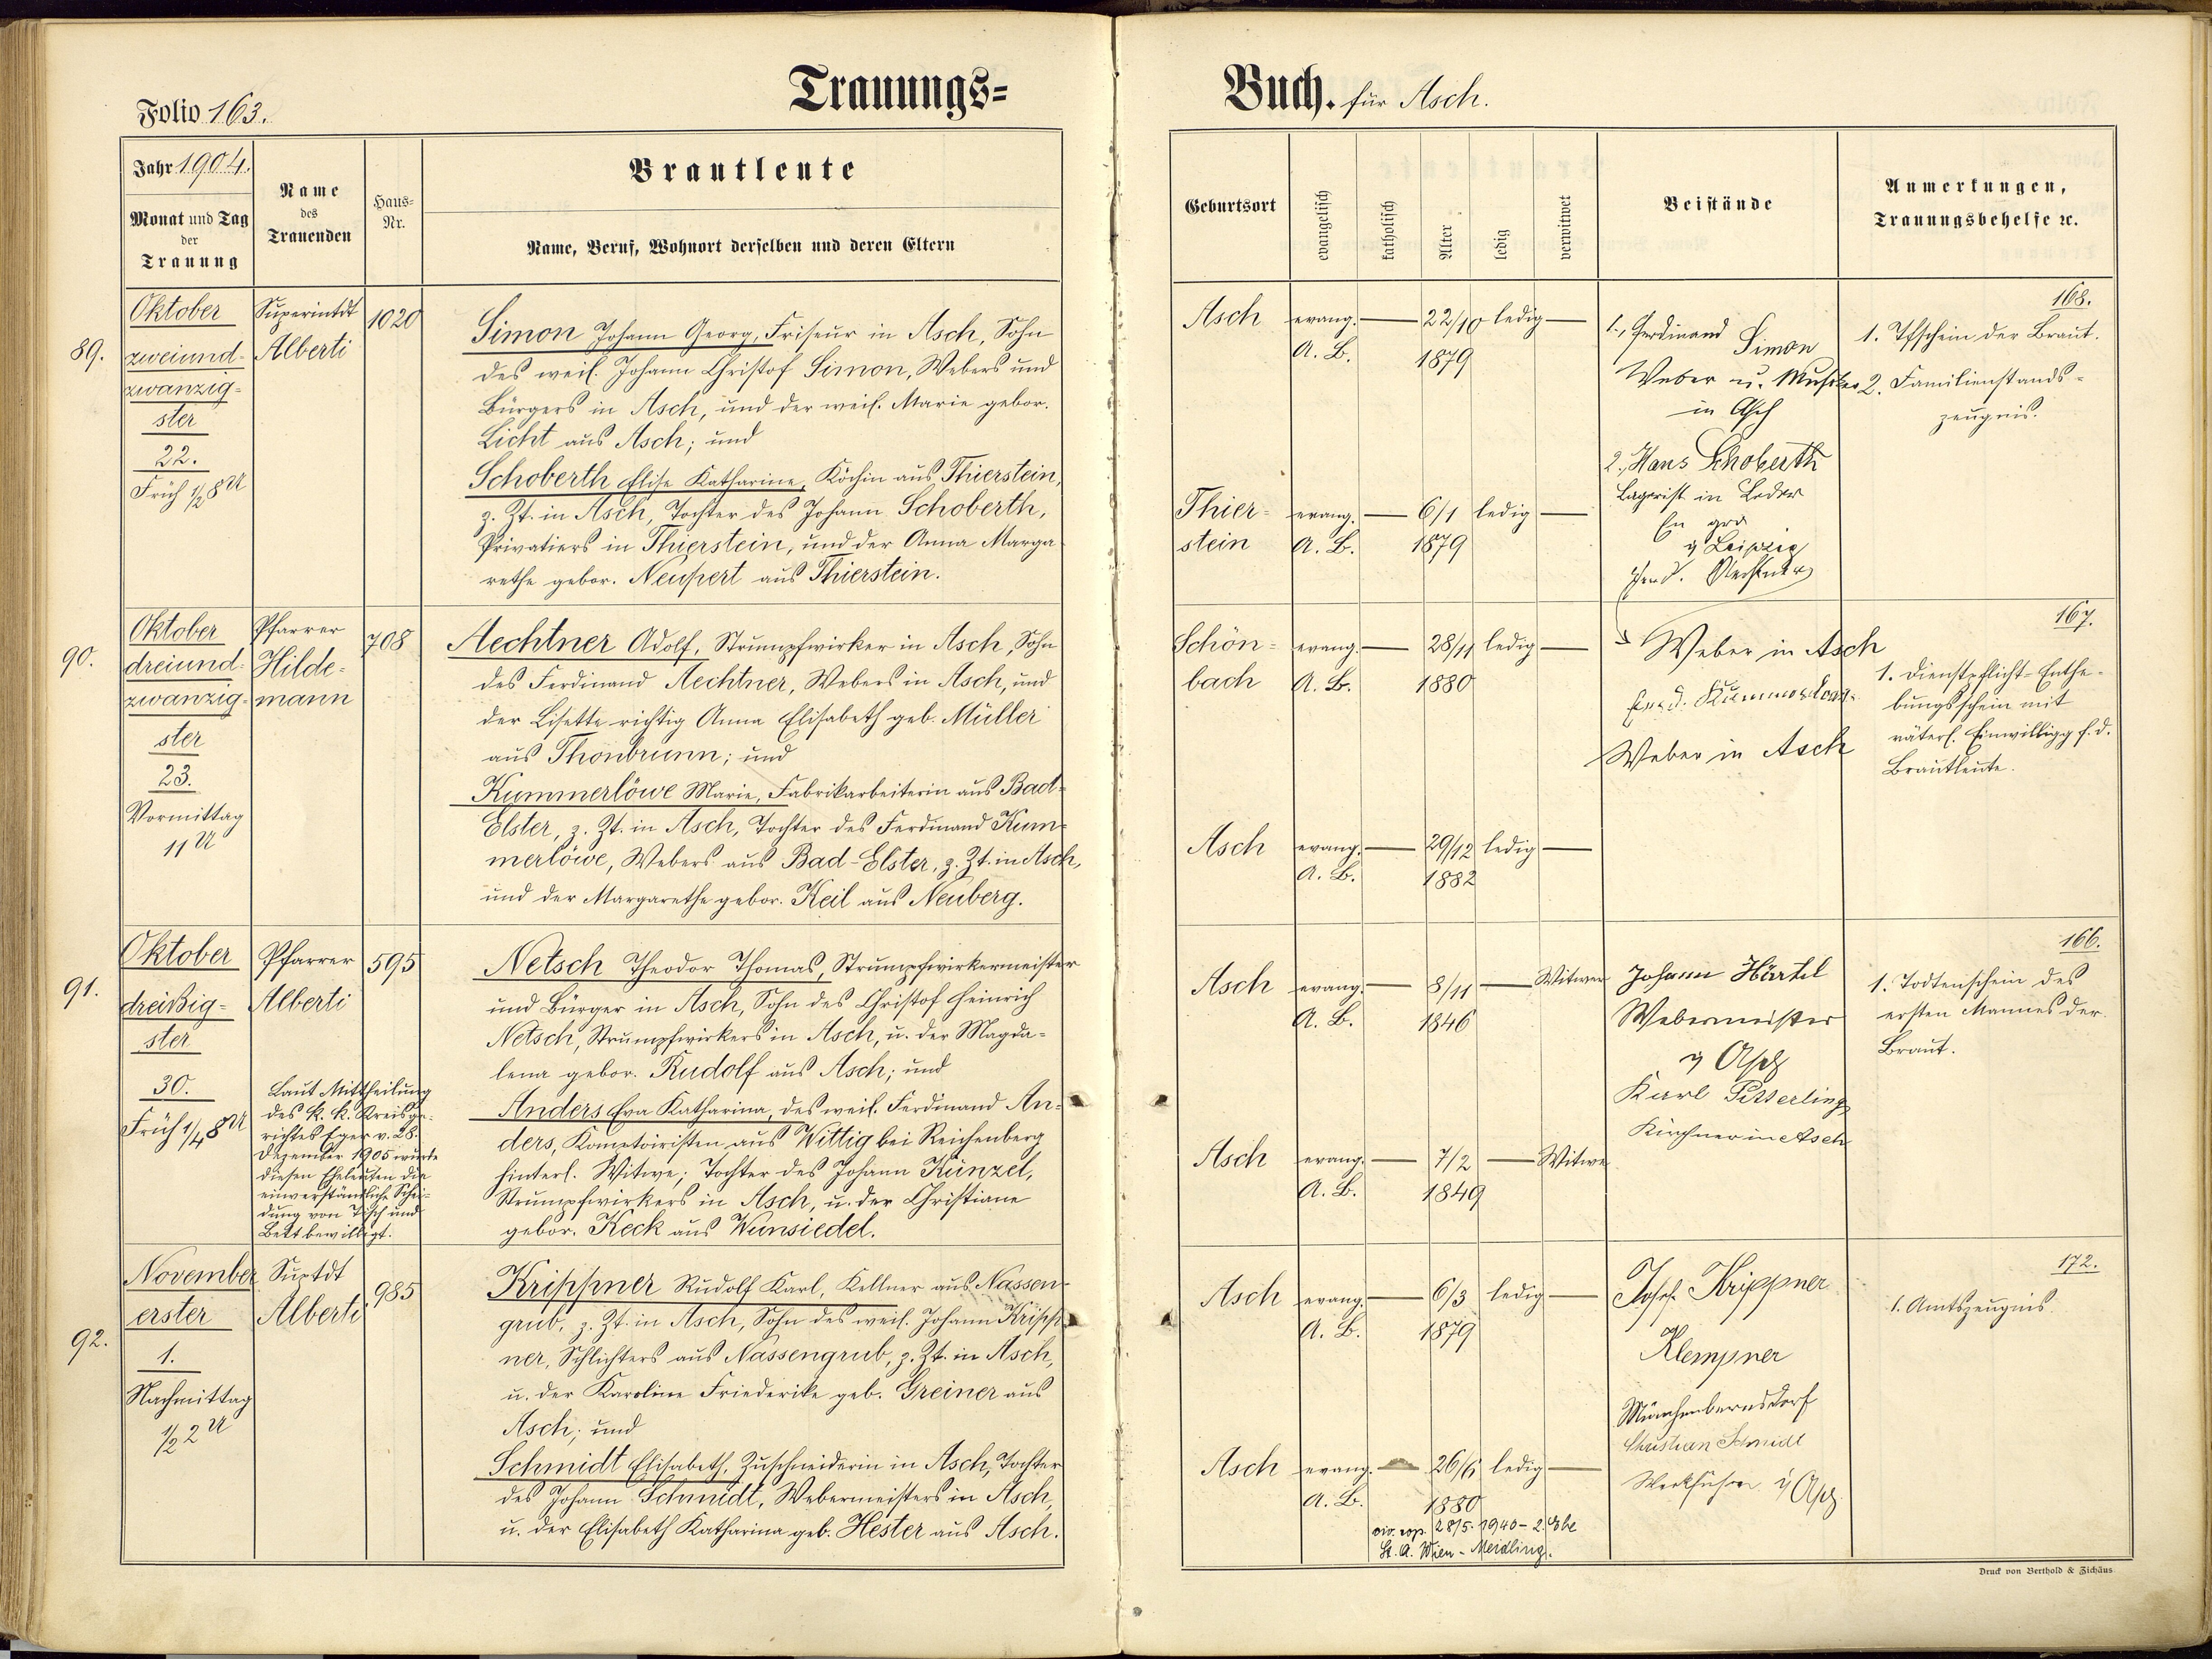 Trauungs=
Folio 163.
Jahr 1904.
Monat und Tag
der
Trauung
Name
des
Trauenden
Haus=
Nr.
Brautleute
Name, Beruf, Wohnort derselben und deren Eltern
89.
Oktober
zweiund-
zwanzig-
ster
22.
Früh ½8 U
Superintdt
Alberti
1020
Simon Johann Georg, Friseur in Asch, Sohn
des weil. Johann Christof Simon, Webers und
Bürgers in Asch, und der weil. Marie gebor.
Licht aus Asch; und
Schoberth Elise Katharine, Köchin aus Thierstein,
z. Zt. in Asch, Tochter des Johann Schoberth,
Privatiers in Thierstein, und der Anna Marga
rethe gebor. Neupert aus Thierstein.
90.
Oktober
dreiund-
zwanzig-
ster
23.
Vormittag
11 U
Pfarrer
Hilde-
mann
708
Aechtner Adolf, Strumpfwirker in Asch, Sohn
des Ferdinand Aechtner, Webers in Asch, und
der Lisette richtig Anna Elisabeth geb. Müller
aus Thonbrunn; und
Kummerlöwe Marie, Fabrikarbeiterin aus Bad-
Elster, z. Zt. in Asch, Tochter des Ferdinand Kum-
merlöwe, Webers aus Bad-Elster, z. Zt. in Asch,
und der Margarethe gebor. Keil aus Neuberg.
91.
Oktober
dreißig-
ster
30.
Früh ¼8 U
Pfarrer
Alberti
Laut Mittheilung
des k. k. Kreisge-
richtes Eger v. 28.
Dezember 1905 wurde
diesen Eheleuten die
einverständliche Schei-
dung von Tisch und
Bett bewilligt.
595
Netsch Theodor Thomas, Strumpfwirkermeister
und Bürger in Asch, Sohn des Christof Heinrich
Netsch, Strumpfwirkers in Asch, u. der Magda-
lena gebor. Rudolf aus Asch; und
Anders Eva Katharina, des weil. Ferdinand An-
ders, Komptoiristen aus Wittig bei Reichenberg
hinterl. Witwe; Tochter des Johann Künzel,
Strumpfwirkers in Asch, u. der Christiane
gebor. Keck aus Wunsiedel.
92.
November
erster
1.
Nachmittag
½2 U
Suptdt
Alberti
985
Krippner Rudolf Karl, Kellner aus Nassen-
grub, z. Zt. in Asch, Sohn des weil. Johann Kripp
ner, Schlichters aus Nassengrub, z. Zt. in Asch,
u. der Karoline Friederike geb. Greiner aus
Asch; und
Schmidt Elisabeth, Zuschneiderin in Asch, Tochter
des Johann Schmidt, Webermeisters in Asch,
u. der Elisabeth Katharina geb. Hester aus Asch.
Buch. für Asch.
Geburtsort
evangelisch
katholisch
Alter
ledig
verwitwet
Beistände
Anmerkungen,
Trauungsbehelfe ꝛc.
Asch evang. 22/10 ledig
A. B. 1879
1., Ferdinand Simon
Weber u. Musiker
in Asch
2., Hans Schoberth
Lagerist in Leder
En gros
Leipzig
168.
1. Tfschein der Braut.
2. Familienstands-
zeugnis.
Thier- evang. 6/1 ledig
stein A. B. 1879
Schön- evang. 28/11 ledig
bach A. B. 1880
Weber in Asch
Weber in Asch
167.
1. Dienstpflicht-Enthe-
bungsschein mit
väterl. Einwilligg f. d.
Brautleute.
Asch evang. 29/12 ledig
A. B. 1882
Asch evang. 8/11 Witwer
A. B. 1846
Johann Härtel
Webermeister
Asch
Karl
Kirchner in Asch
166.
1. Todtenschein des
ersten Mannes der
Braut.
Asch evang. 7/2 Witwe
A. B. 1849
Asch evang. 6/3 ledig
A. B. 1879
Josef Krippner
Klempner
Münchenbernsdorf
Christian Schmidt
Werkführer Asch
172.
1. Amtszeugnis.
Asch evang. 26/6 ledig
A. B. 1880
civ. cop. 28/5. 1940 - 2. Ehe
St. A. Wien - Meidling.
Druck von Berthold & Zichäus